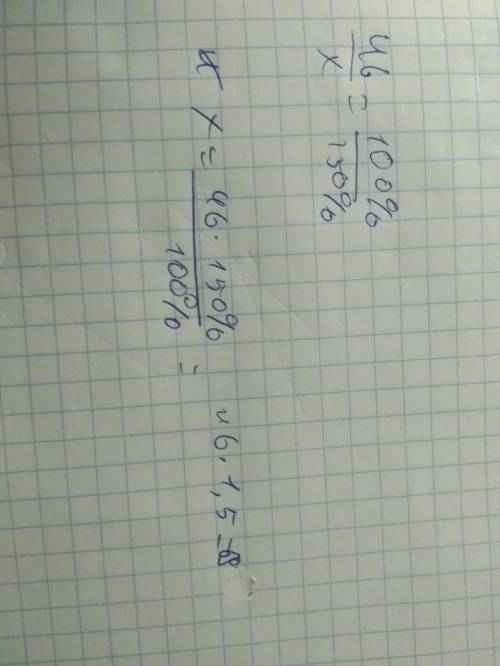 46/x = 100%/150%
x = 46 · 150%/100% = 46 · 1,5 =